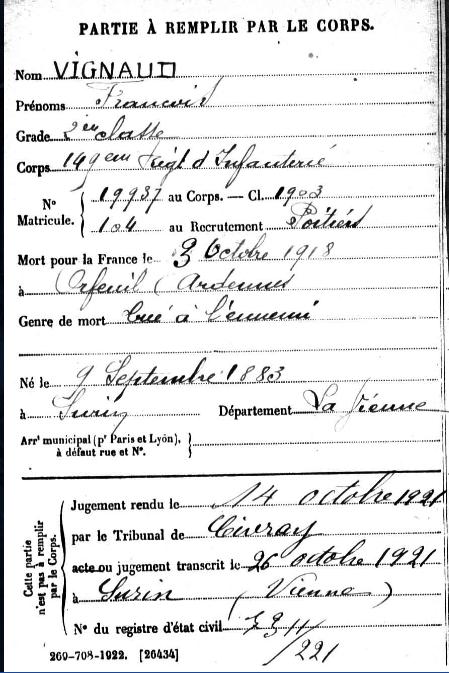 PARTIE À REMPLIR PAR LE CORPS.
Nom VIGNAUD
Prénoms Francois
Grade 2em classe
Corps 149em Regt d'Infanterie
Nº Matricule. { 19937 au Corps. — Cl. 1903
104 au Recrutement Poitiers
Mort pour la France le 3 Octobre 1918
à Orfeuil (Ardennes
Genre de mort tué à l'ennemi
Né le 9 Septembre 1883
à Surin Département La Vienne
Arrt municipal (pr Paris et Lyon), à défaut rue et Nº. }
Cette partie n'est pas à remplir par le Corps.
Jugement rendu le 14 octobre 1921
par le Tribunal de Civray
acte ou jugement transcrit le 26 octobre 1921
à Surin (Vienne)
Nº du registre d'état civil
/221
269-708-1922. [26434]